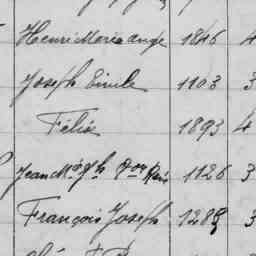 Henri Marie ange 1846 4
Joseph Emile 1103 3
Félix 1893 4
Jean M. Jph 1126 3
François Joseph 1288 3